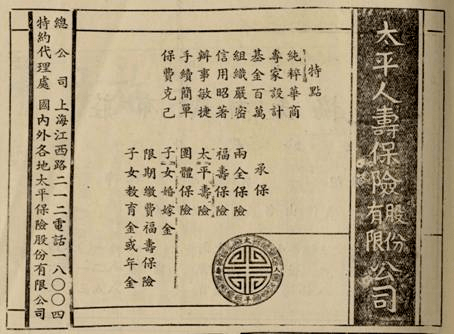 太平人壽保險股份有限公司
特點
純粹華商
專家設計
基金百萬
組織嚴密
信用昭著
辦事敏捷
手續簡單
保費克己
承保
兩全保險
福壽保險
太平壽險
團體保險
子女婚嫁金
限期繳費福壽保險
子女教育金或年金
總公司 上海江西路二一二電話一八〇〇四
特約代理處 國內外各地太平保險股份有限公司